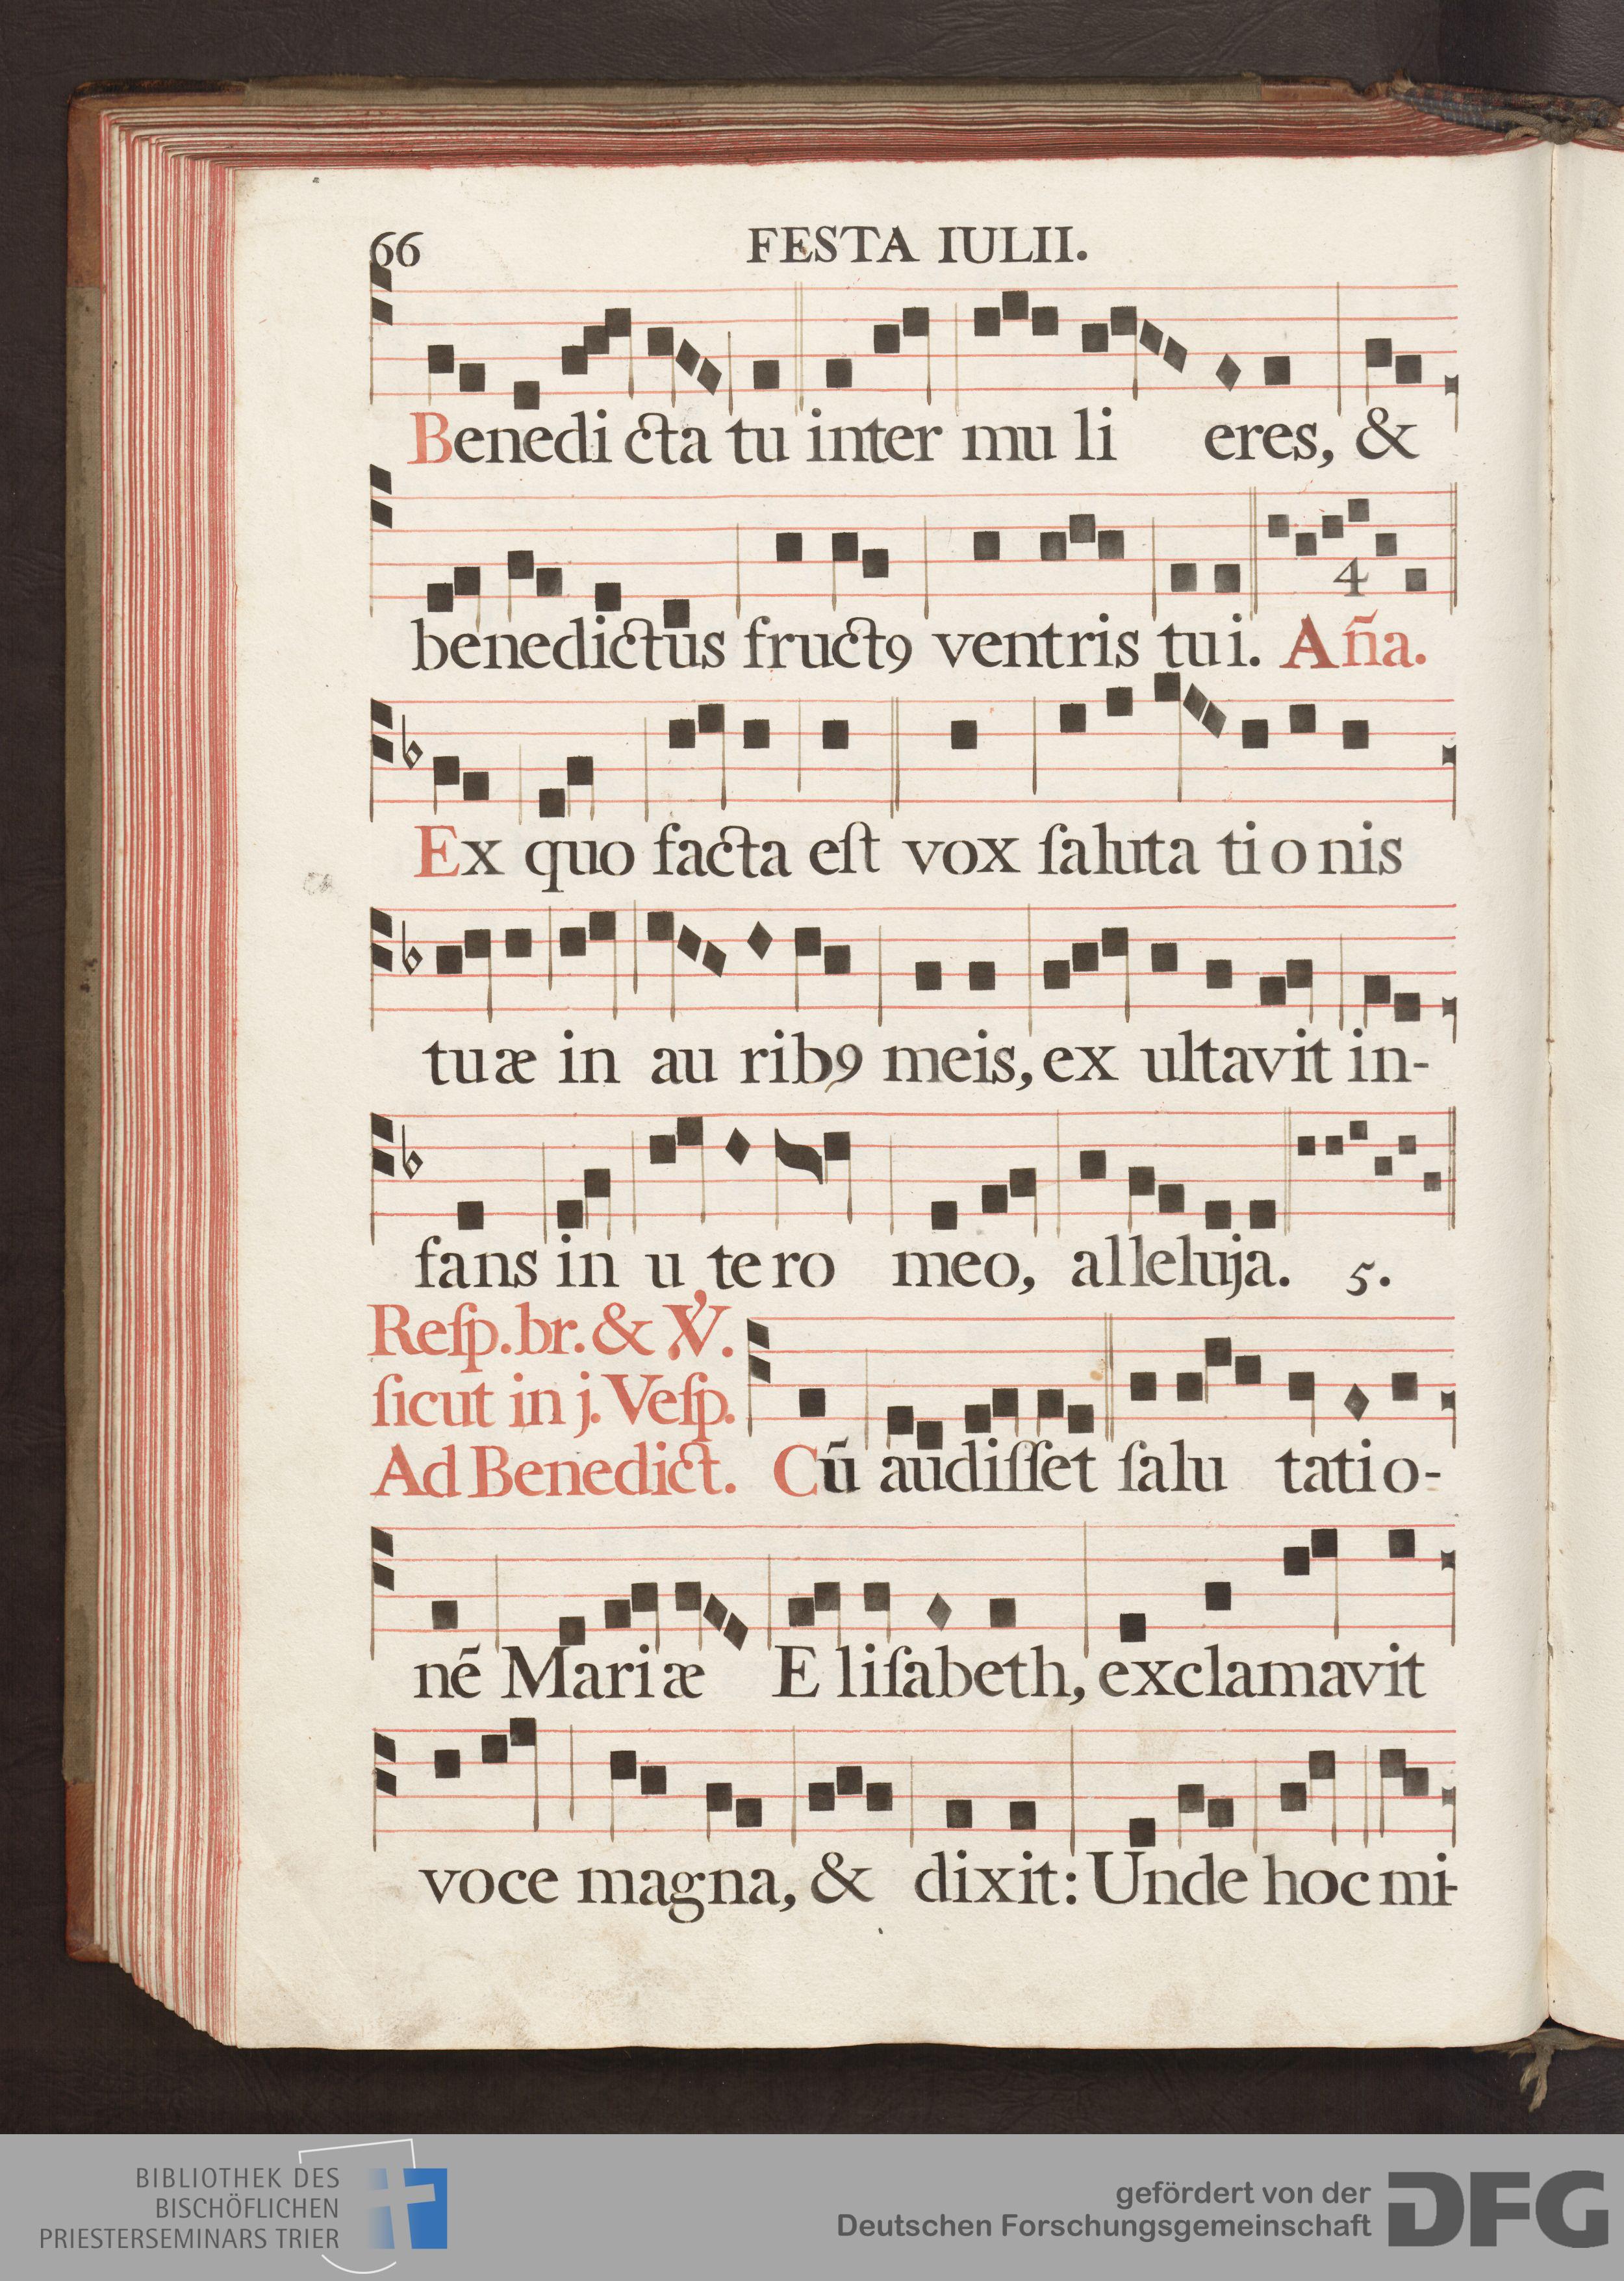 66 FESTA IULII.
Benedicta tu inter mu li eres, &
benedictus fruct9 ventris tui. Aña.
4
Ex quo facta eſt vox ſaluta tionis
tuæ in au rib9 meis, ex ultavit in-
fans in u tero meo, alleluja. 5.
Reſp. br. & ℣.
ſicut in j. Veſp.
Ad Benedict. Cū audiſſet ſalu tatio-
nē Mariæ E liſabeth, exclamavit
voce magna, & dixit: Unde hoc mi-
BIBLIOTHEK DES
BISCHÖFLICHEN
PRIESTERSEMINARS TRIER
gefördert von der
Deutschen Forschungsgemeinschaft
DFG